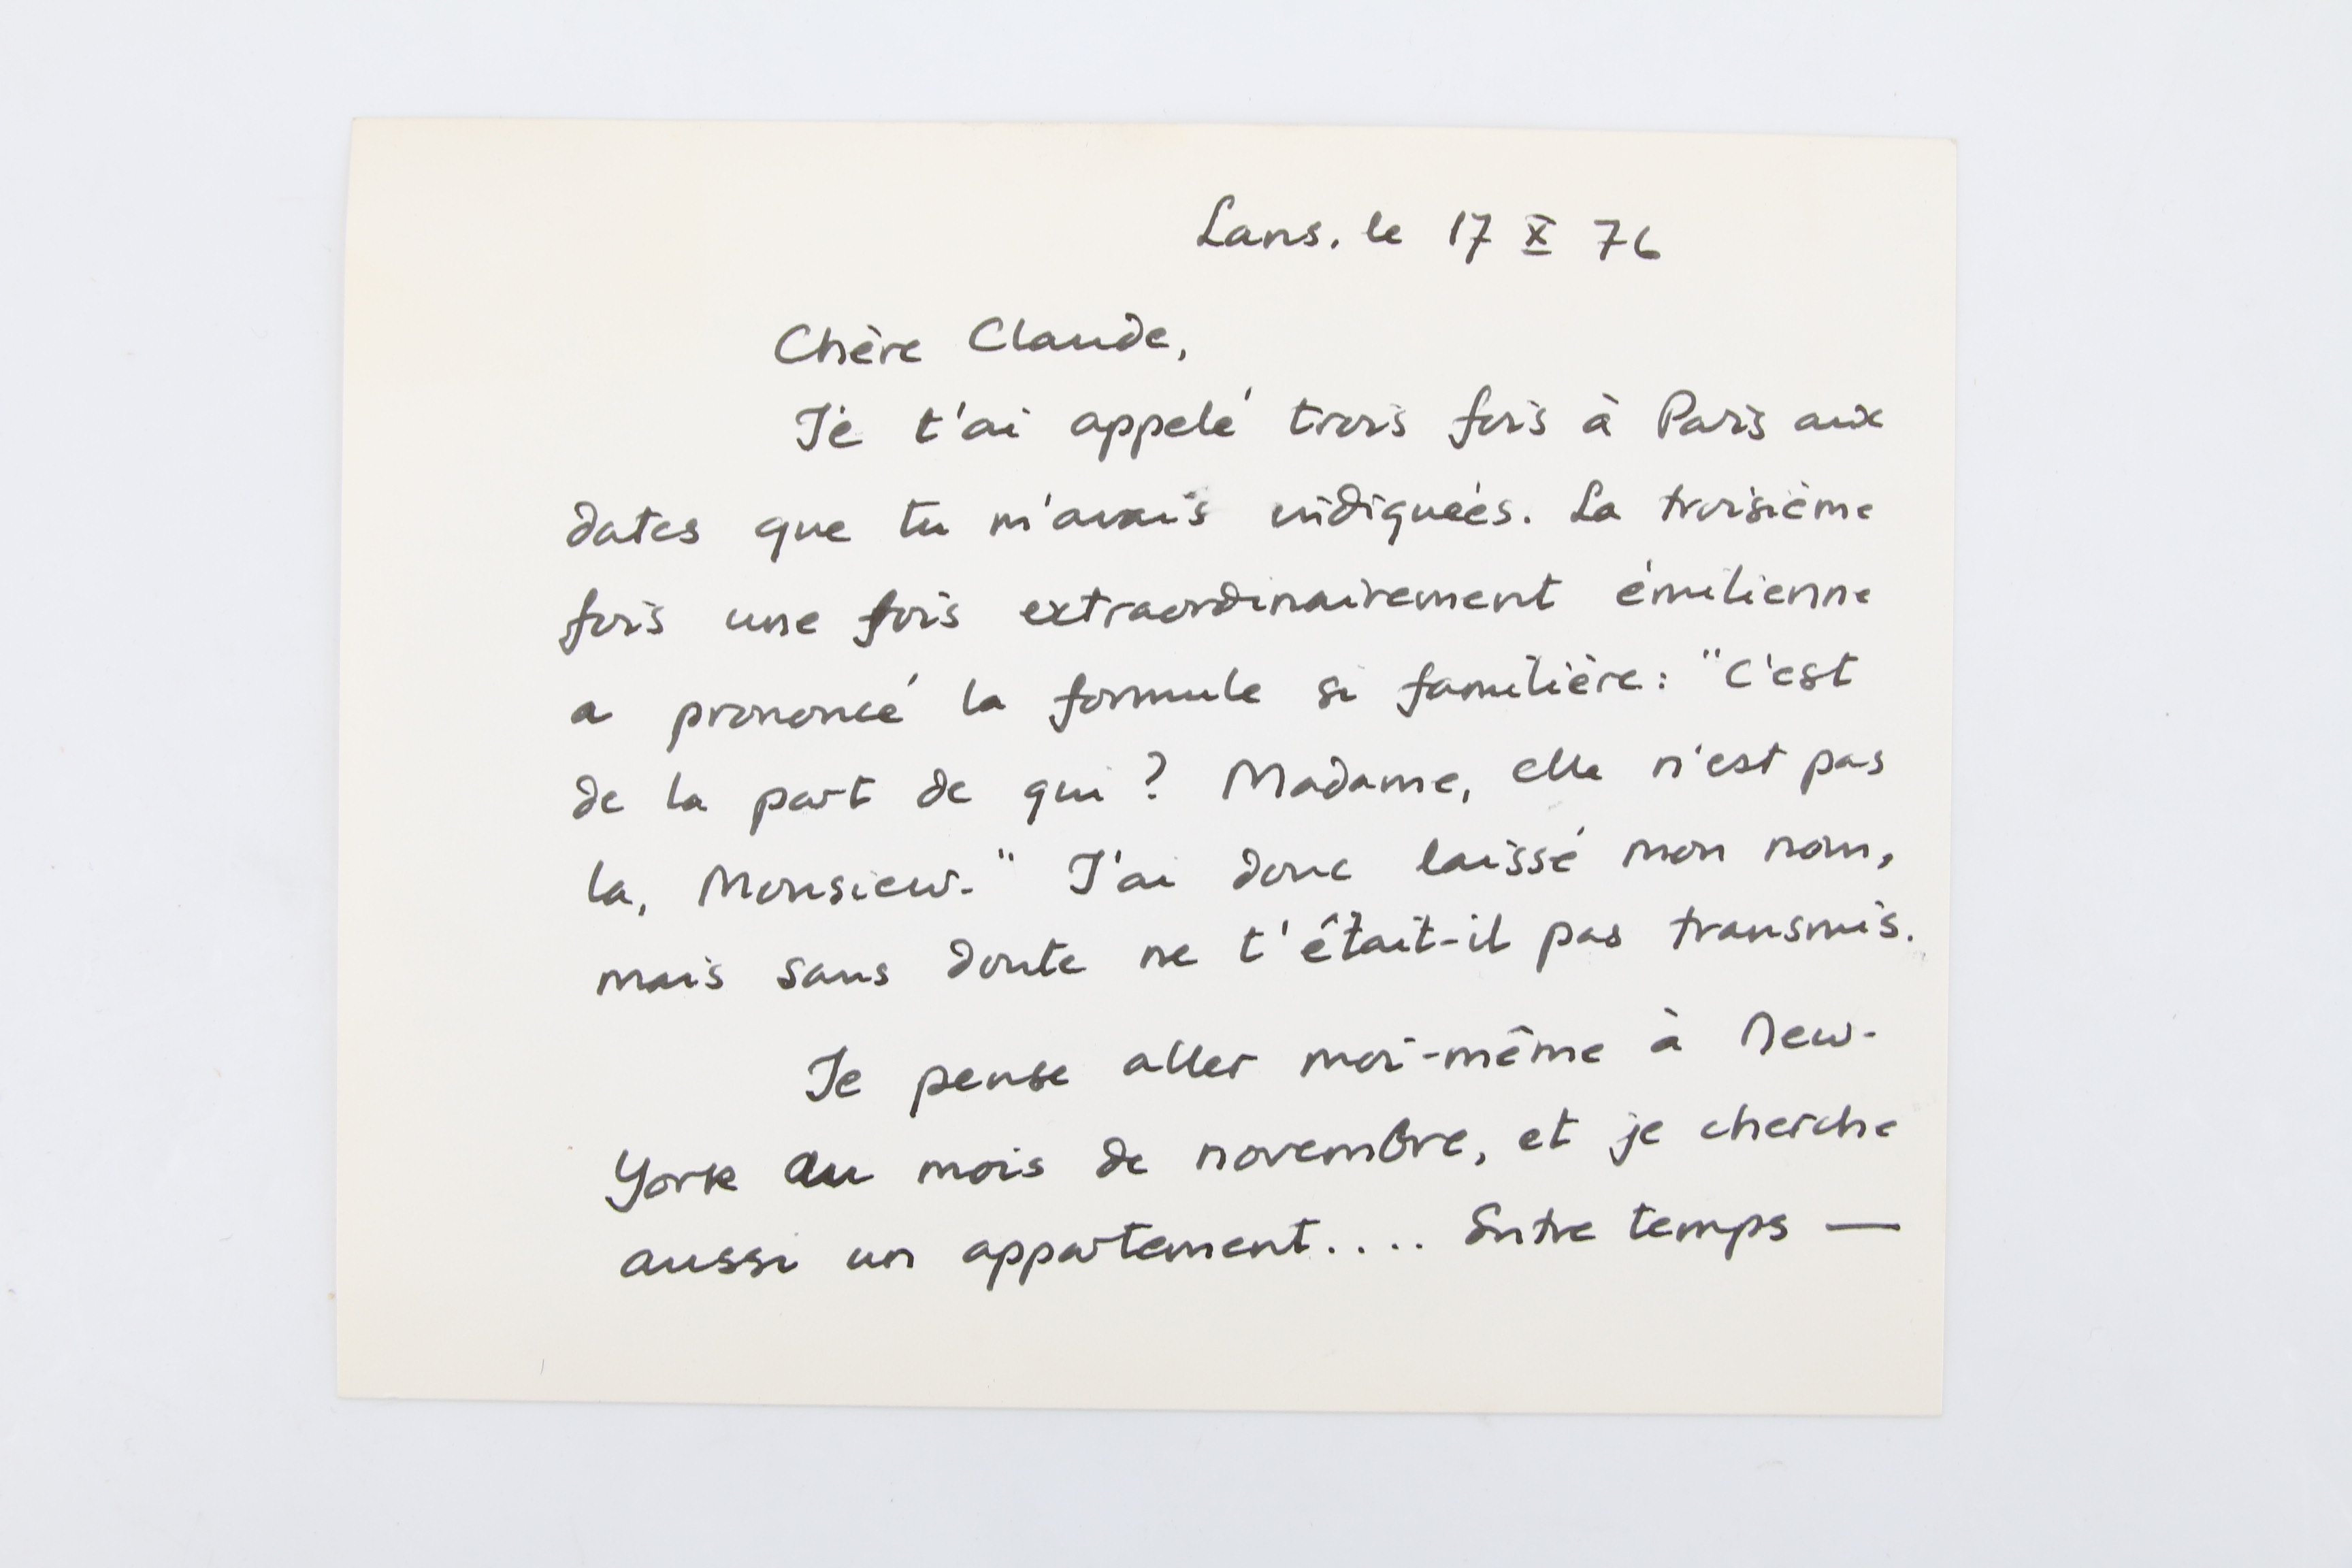 Lans, le 17 X 76
Chère Claude,
Je t'ai appelé trois fois à Paris aux
dates que tu m'avais indiquées. La troisième
fois une fois extraordinairement émilienne
a prononcé la formule si familière : "C'est
de la part de qui ? Madame, elle n'est pas
la, Monsieur." J'ai donc laissé mon nom,
mais sans doute ne t'était-il pas transmis.
Je pense aller moi-même à New-
York au mois de novembre, et je cherche
aussi un appartement.... Entre temps —